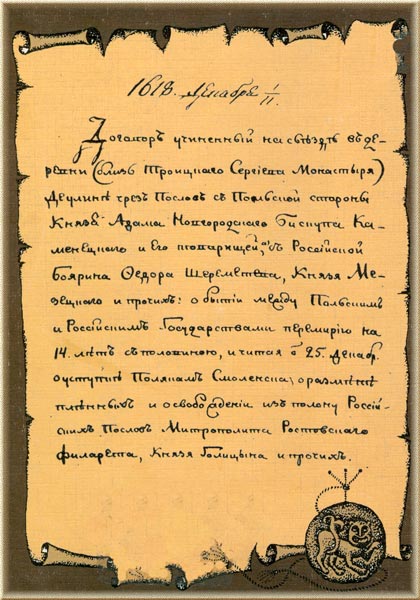 1618. Декабря 1/11.
Договоръ учиненный на съѣздѣ въ де-
ревни (близъ Троицкаго Сергіева Монастыря)
Деулинѣ чрезъ Пословъ съ Польской стороны
Князя Адама Новгородскаго Бискупа Ка-
менецкаго и его товарищей, а съ Россійской
боярина Федора Шереметева, Князя Ме-
зецкаго и прочихъ: о бытіи между Польскимъ
и Россійскимъ Государствами перемирію на
14. лѣтъ съ половиною, считая с 25. Декабр.
о уступкѣ Полякамъ Смоленска, о размѣнѣ
плѣнныхъ и освобожденіи изъ полону Россій-
скихъ Пословъ Митрополита Ростовскаго
Филарета, Князя Голицына и прочихъ.